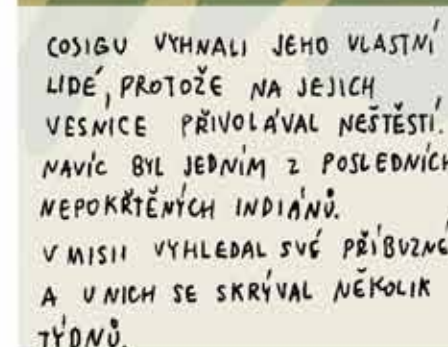 COSIGU VYHNALI JEHO VLASTNÍ
LIDÉ, PROTOŽE NA JEJICH
VESNICE PŘIVOLÁVAL NEŠTĚSTÍ.
NAVÍC BYL JEDNÍM Z POSLEDNÍCH
NEPOKŘTĚNÝCH INDIÁNŮ.
V MISII VYHLEDAL SVÉ PŘÍBUZNÉ
A U NICH SE SKRÝVAL NĚKOLIK
TÝDNŮ.